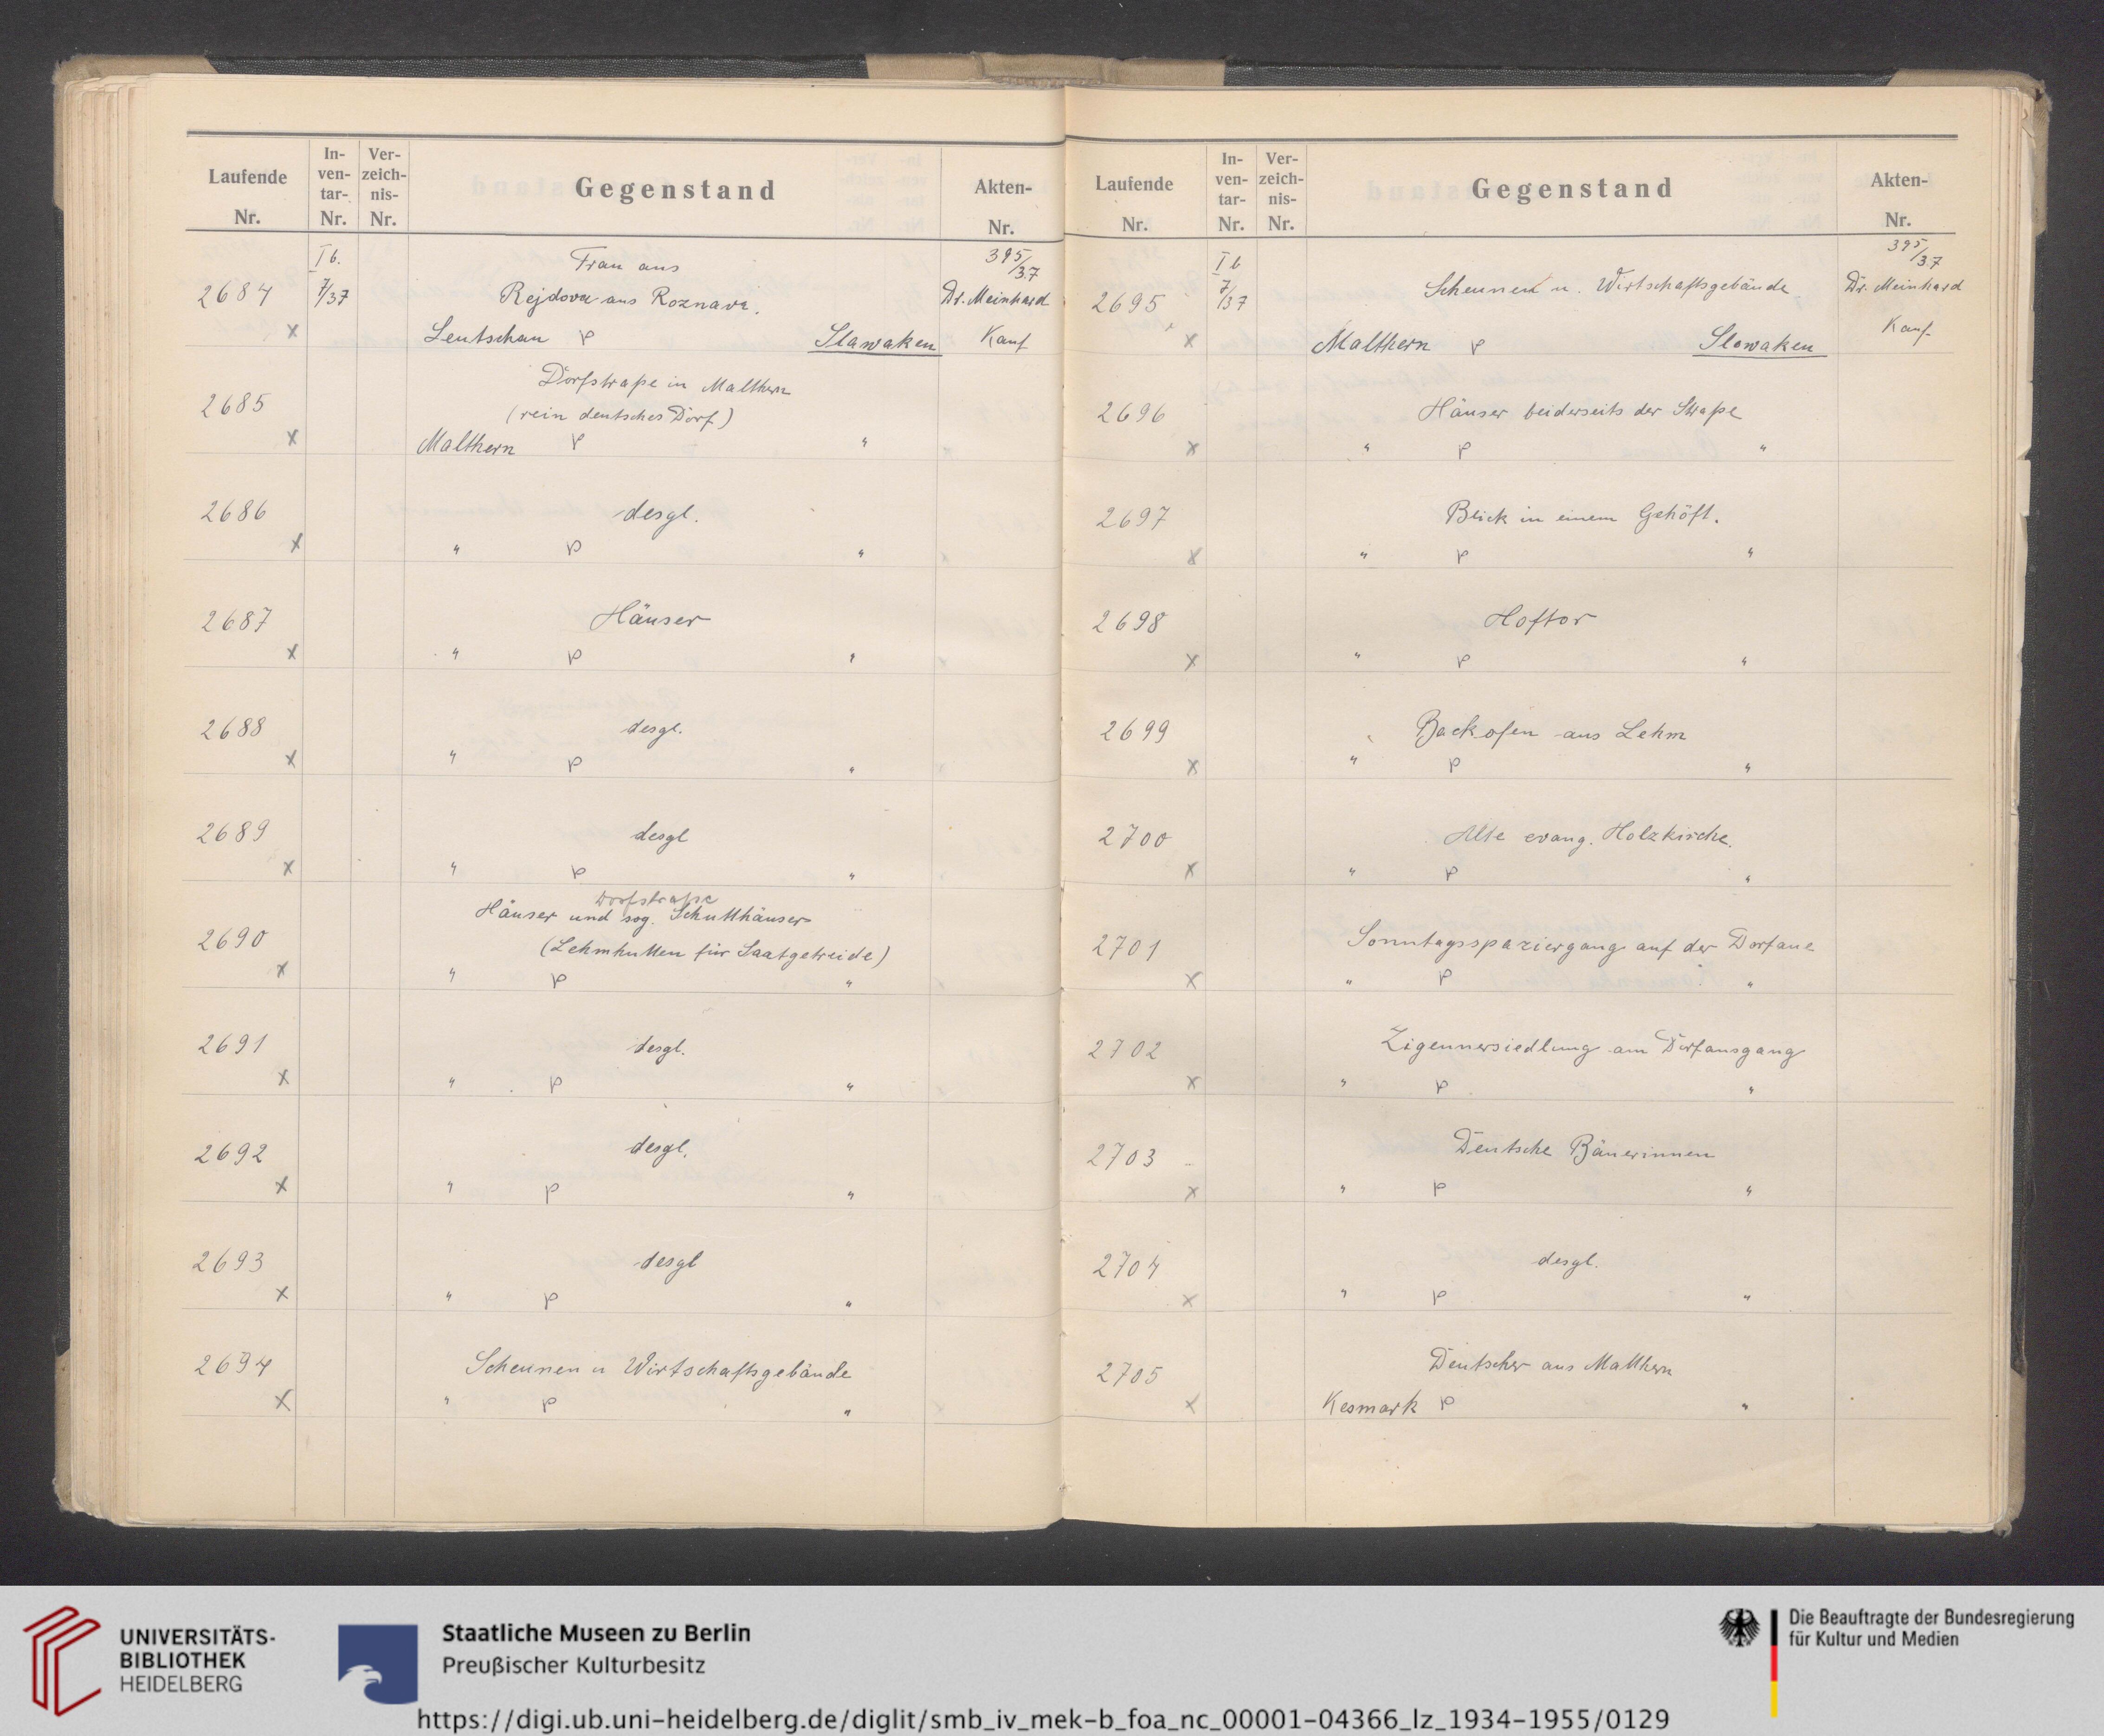 Laufende Nr. In-ven-tar-Nr. Ver-zeich-nis-Nr. Gegenstand Akten-Nr.
I b. Frau aus 395/37
2684 7/37 Rejdova aus Roznava. Dr. Meinhard
x Leutschau p Slawaken Kauf
Dorfstraße in Malthern
2685 (rein deutsches Dorf)
x Malthern p "
2686 desgl.
x " p "
2687 Häuser
x " p "
2688 desgl.
x " p "
2689 desgl
x " p "
Dorfstraße
Häuser und sog. Schutthäuser
2690 (Lehmhutten für Saatgetreide)
x " p "
2691 desgl.
x " p "
2692 desgl.
x " p "
2693 desgl
x " p "
2694 Scheunen u Wirtschaftsgebäude
x " p "
Laufende Nr. In-ven-tar-Nr. Ver-zeich-nis-Nr. Gegenstand Akten-Nr.
I b 395/37
2695 7/37 Scheunen u. Wirtschaftsgebäude Dr. Meinhard
x Malthern p Slowaken Kauf
2696 Häuser beiderseits der Straße
x " p "
2697 Blick in einem Gehöft.
x " p "
2698 Hoftor
x " p "
2699 Backofen aus Lehm
x " p "
2700 Alte evang. Holzkirche.
x " p "
2701 Sonntagsspaziergang auf der Dorfaue
x " p "
2702 Zigeunersiedlung am Dorfausgang
x " p "
2703 Deutsche Bäuerinnen
x " p "
2704 desgl.
x " p "
2705 Deutscher aus Malthern
x Kesmark p "
UNIVERSITÄTS-
BIBLIOTHEK
HEIDELBERG
Staatliche Museen zu Berlin
Preußischer Kulturbesitz
Die Beauftragte der Bundesregierung
für Kultur und Medien
https://digi.ub.uni-heidelberg.de/diglit/smb_iv_mek-b_foa_nc_00001-04366_lz_1934-1955/0129